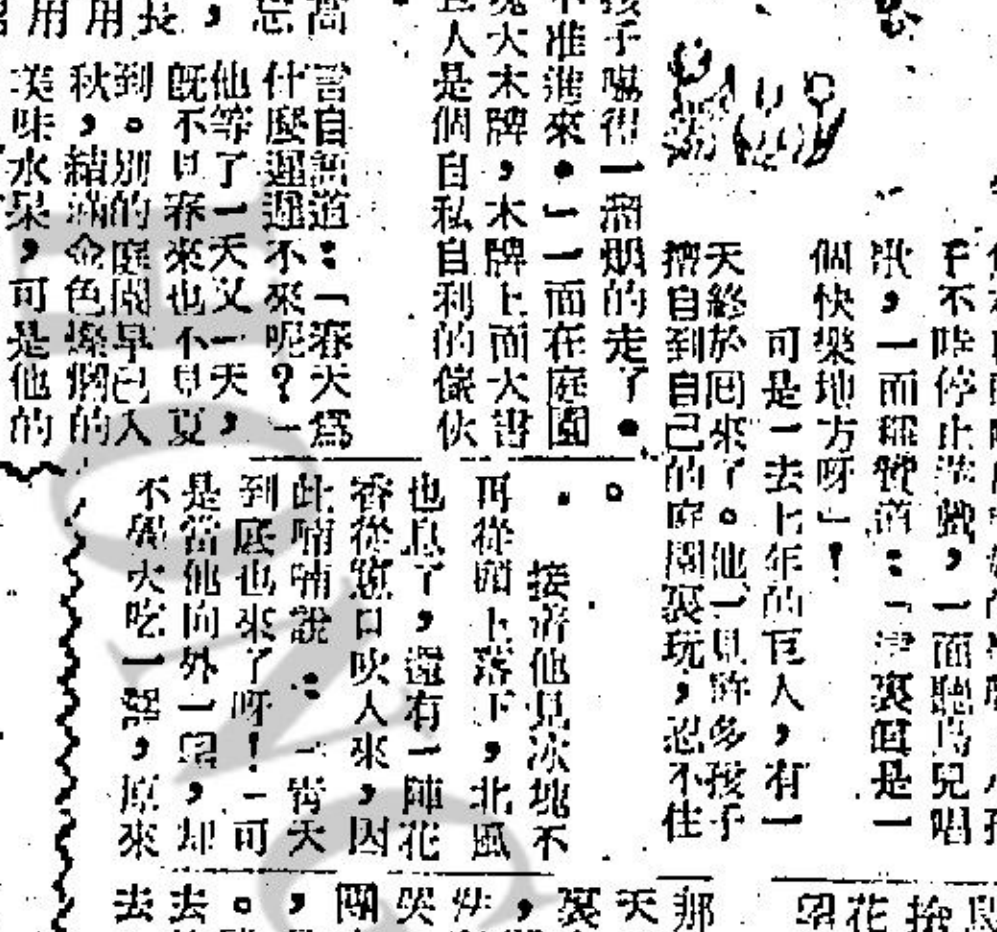 手不停止游戲，一面聽鳥兒唱
歌，一面稱贊道：「這裏眞是一
個快樂地方呀」！
可是一去七年的巨人，有一
天終於囘來了。他一見許多孩子
擠自到自己的庭園裏玩，忍不住
孩子嚇得一溜烟的走了。
不准進來。一一面在庭園
塊大木牌，木牌上面大書
巨人是個自私自利的傢伙
高
忘
，
長
用
用
言自語道：「春天爲
什麼遲遲不來呢？一
他等了一天又一天，
旣不見春來也不見夏
到。別的庭園早已入
秋，結滿金色燦爛的
美味水果，可是他的
接着他見冰塊不
再從頭上落下，北風
也息了，還有一陣花
香從窗口吹人來，因
此喃喃說：一春天
到底也來了呀！一可
是當他向外一望，却
不禁大吃一驚，原來
花
望
那
天
裏
，
哭
園
，
。
去
去